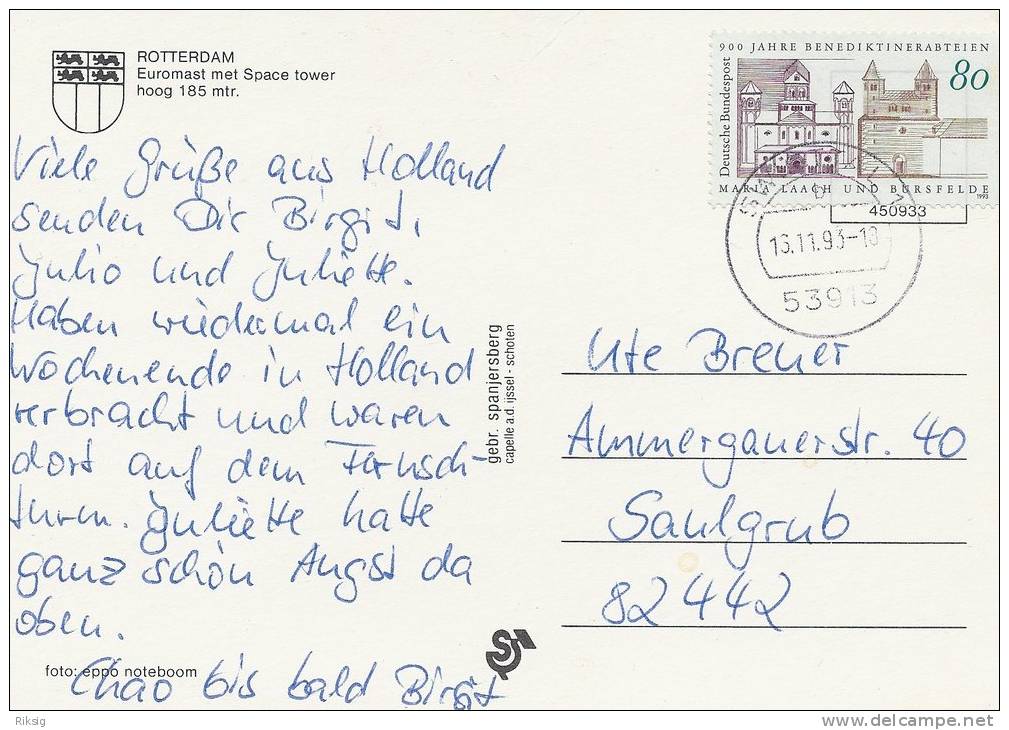 ROTTERDAM
Euromast met Space tower
hoog 185 mtr.
Viele Grüße aus Holland
senden Dir Birgit,
Julio und Juliette.
Haben wiedermal ein
Wochenende in Holland
verbracht und waren
dort auf dem Fernseh-
turm. Juliette hatte
ganz schön Angst da
oben.
Chao bis bald Birgit
foto: eppo noteboom
gebr. spanjersberg
capelle a.d. ijssel - schoten
900 JAHRE BENEDIKTINERABTEIEN
80
Deutsche Bundespost
MARIA LAACH UND BURSFELDE
1993
450933
16.11.93-18
53913
Ute Breuer
Ammergauerstr. 40
Saulgrub
82442
Riksig
www.delcampe.net